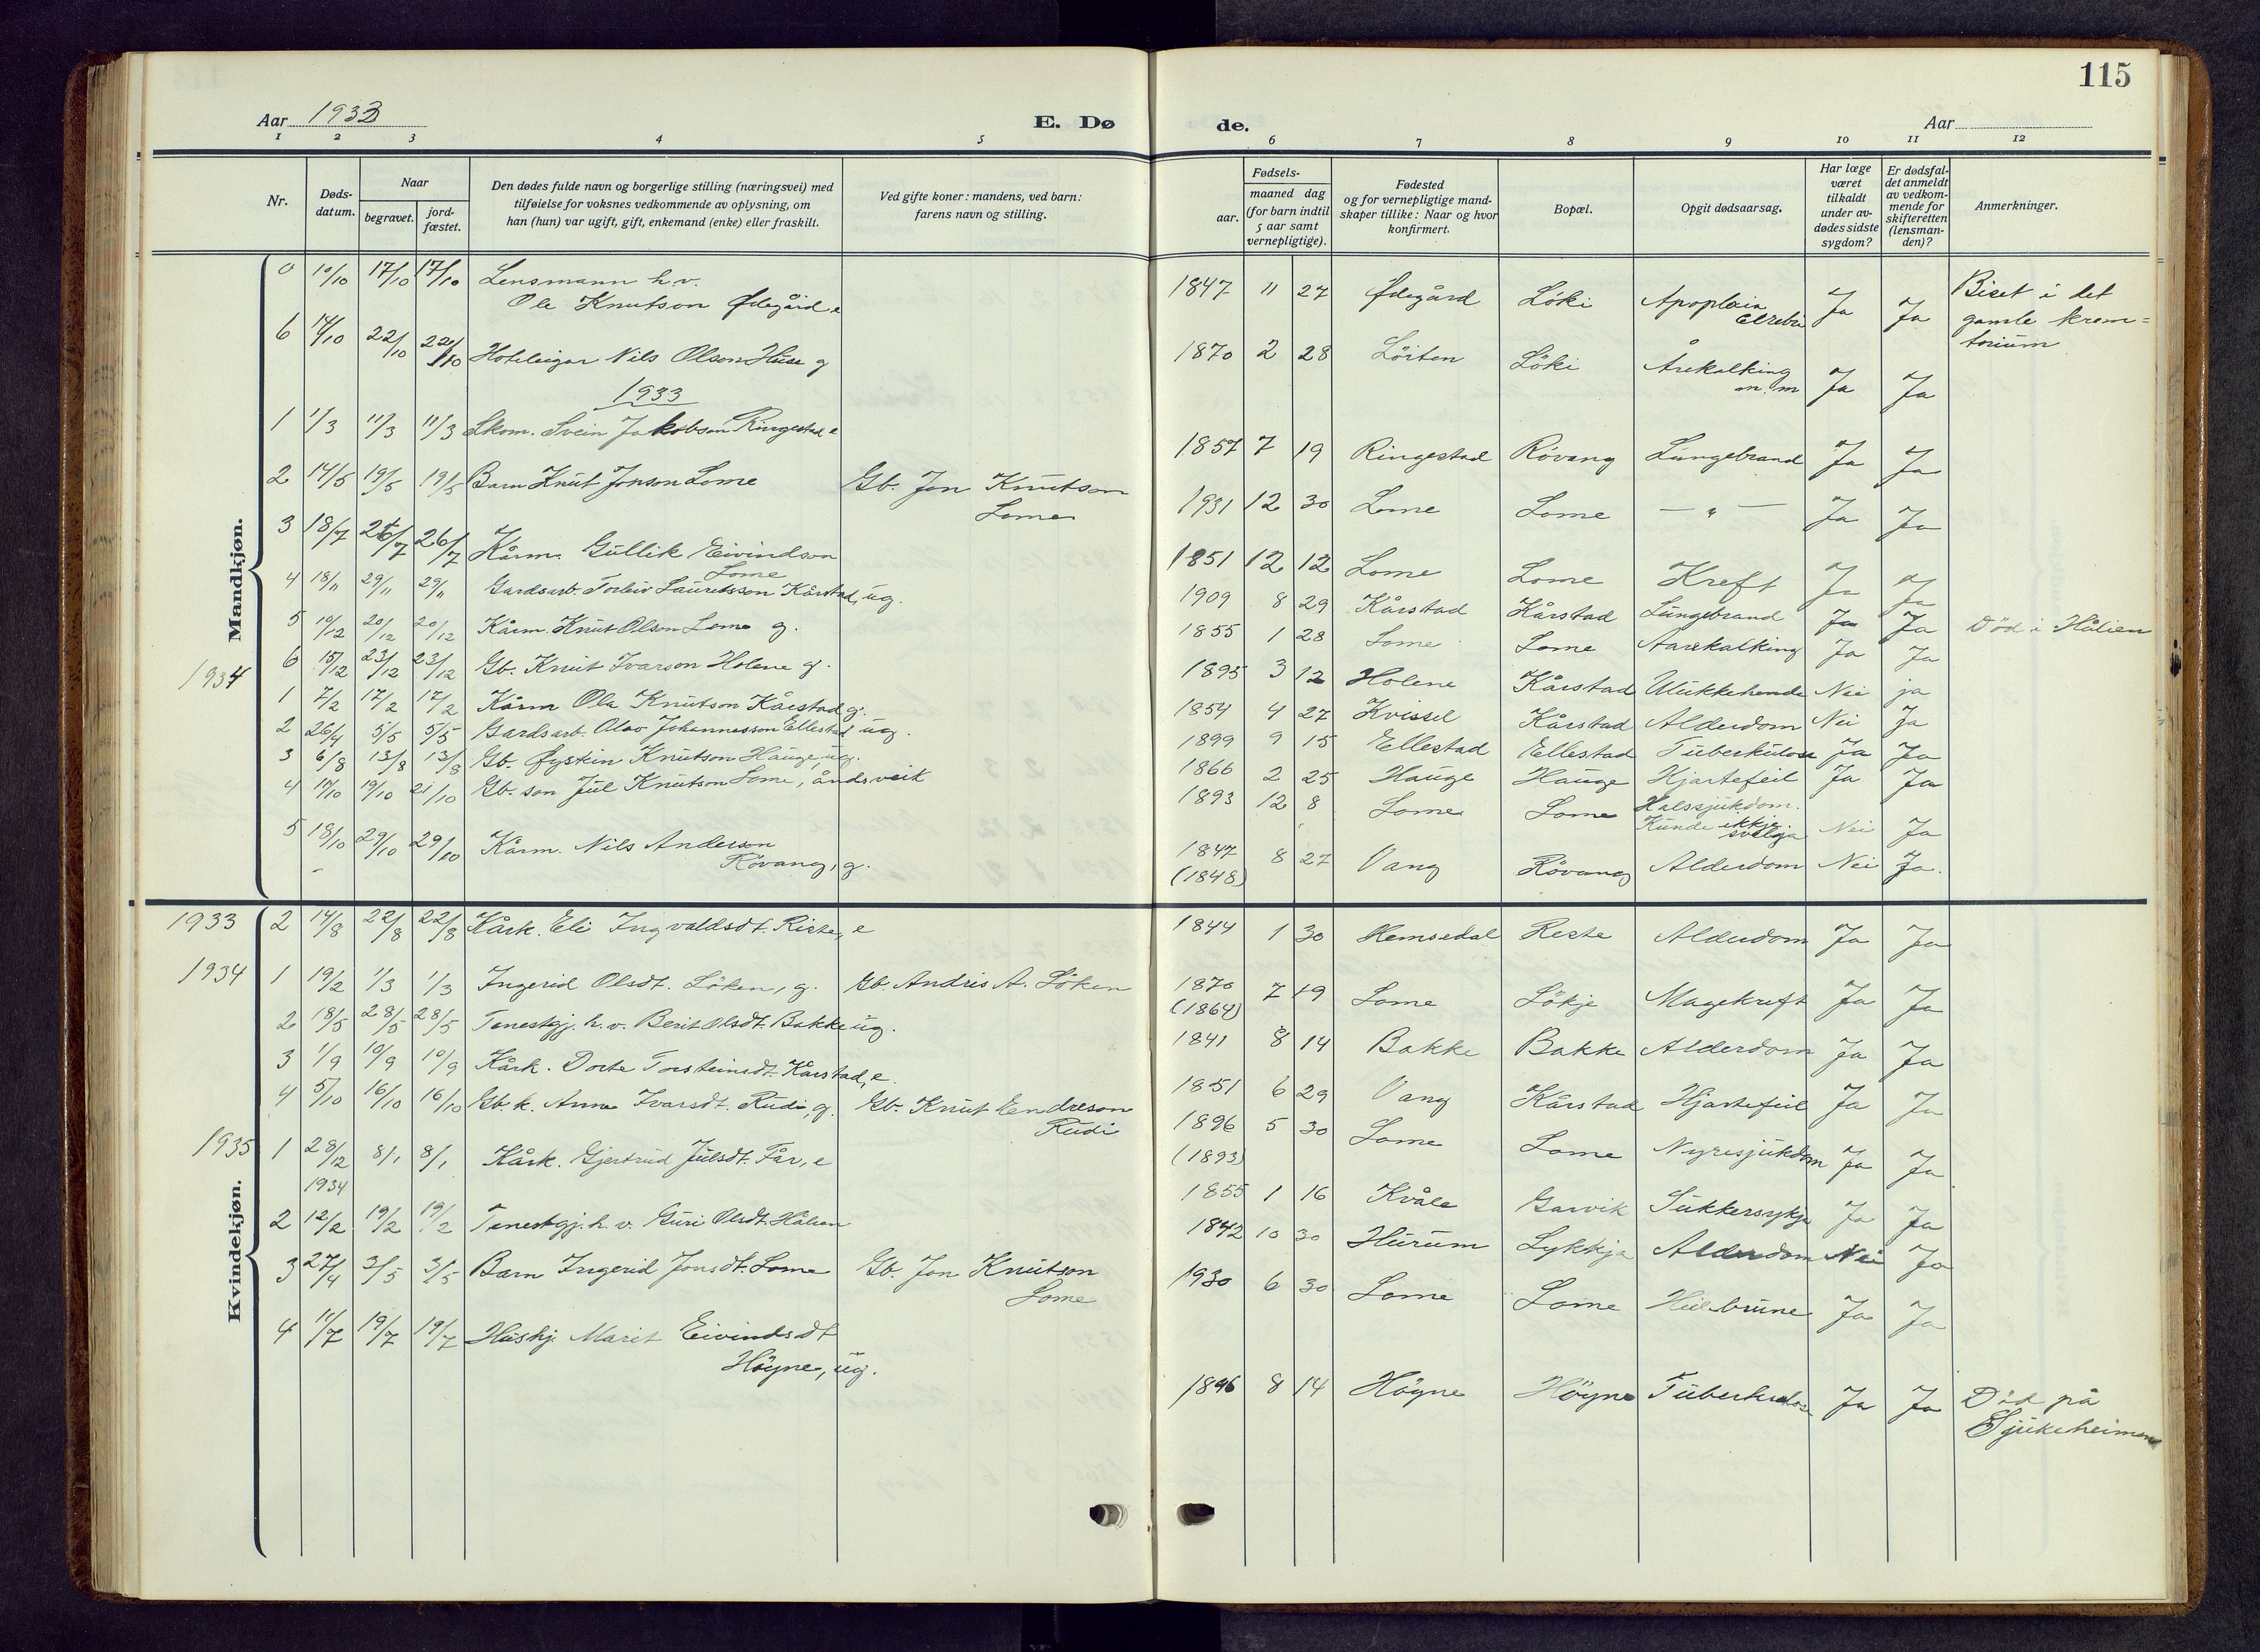 115
Aar 1933 E. Dø de. Aar
1 2 3 4 5 6 7 8 9 10 11 12
Nr. Døds-datum. Naar begravet. jord-fæstet. Den dødes fulde navn og borgerlige stilling (næringsvei) med tilføielse for voksnes vedkommende av oplysning, om han (hun) var ugift, gift, enkemand (enke) eller fraskilt. Ved gifte koner: mandens, ved barn: farens navn og stilling. Fødsels- aar. maaned dag (for barn indtil 5 aar samt vernepligtige). Fødested og for vernepligtige mand-skaper tillike: Naar og hvor konfirmert. Bopæl. Opgit dødsaarsag. Har læge været tilkaldt under av-dødes sidste sygdom? Er dødsfal-det anmeldt av vedkom-mende for skifteretten (lensman-den)? Anmerkninger.
Mandkjøn.
10/10 17/10 17/10 Lensmann h.v. Ole Knutson Ødegård e 1847 11 27 Ødegård Løki Ja Ja Biset i det gamle krem=torium
6 14/10 22/10 22/10 Hoteleigar Nils Olson Huse g 1870 2 28 Löiten Löki Årekalking m.m Ja Ja
1933
1 1/3 11/3 11/3 Skom. Svein Jakobson Ringestad e 1857 7 19 Ringestad Rövang Lungebrand Ja Ja
2 14/5 19/5 19/5 Barn Knut Jonson Lome Gb. Jon Knutson Lome 1931 12 30 Lome Lome — " — Ja Ja
3 18/7 26/7 26/7 Kårm. Gullik Eivindson Lome 1851 12 12 Lome Lome Kreft Ja Ja
4 18/11 29/11 29/11 Gardsarb. Torleiv Lauritsson Kårstad, ug. 1909 8 29 Kårstad Kårstad Lungebrand Ja Ja Död i Hålien
5 10/12 20/12 20/12 Kårm. Knut Olson Lome g. 1855 1 28 Lome Lome Aarekalking Ja Ja
6 15/12 23/12 23/12 Gb. Knut Ivarson Holene g. 1895 3 12 Holene Kårstad Ulukkehende Nei ja
1934
1 7/2 17/2 17/2 Kårm Ola Knutson Kårstad g. 1854 4 27 Kvissel Kårstad Alderdom Nei Ja
2 26/4 5/5 5/5 Gardsarb. Olav Johannesson Ellestad ug. 1899 9 15 Ellestad Ellestad Tuberkulose Ja Ja
3 6/8 13/8 13/8 Gb. Øystein Knutson Hauge, ug. 1866 2 25 Hauge Hauge Hjartefeil Ja Ja
4 17/10 19/10 21/10 Gb. son Jul Knutson Lome, åndsveik 1893 12 8 Lome Lome Halssjukdom. Kunde ikkje svelgja Nei Ja
5 18/10 29/10 29/10 Kårm. Nils Anderson Rövang, g. 1847 (1848) 8 27 Vang Rövang Alderdom Nei Ja.
Kvindekjøn.
1933 2 14/8 22/8 22/8 Kårk. Eli Ingvaldsdt. Riste, e 1844 1 30 Hemsedal Reste Alderdom Ja Ja
1934 1 19/2 1/3 1/3 Ingerid Olsdt. Löken, g. Gb. Andris A. Löken 1870 (1864) 7 19 Lome Lökje Magekreft Ja Ja
2 18/5 28/5 28/5 Tenestgj. h.v. Berit Olsdt. Bakke ug. 1841 8 14 Bakke Bakke Alderdom Ja Ja
3 1/9 10/9 10/9 Kårk. Dorte Torsteinsdt. Kårstad, e. 1851 6 29 Vang Kårstad Hjartefeil Ja Ja
4 5/10 16/10 16/10 Gb.k. Anne Ivarsdt. Rudi, g. Gb. Knut Endreson Rudi 1896 (1893) 5 30 Lome Lome Nyresjukdom Ja Ja
1935 1 28/12 1934 8/1 8/1 Kårk. Gjertrud Julsdt. Får, e 1855 1 16 Kvåle Garvik Sukkersykje Ja Ja
2 12/2 19/2 19/2 Tenestgj. h.v. Guri Olsdt. Hålien 1842 10 30 Hurum Lykkja Alderdom Nei Ja
3 27/4 3/5 3/5 Barn Ingerid Jonsdt. Lome Gb. Jon Knutson Lome 1930 6 30 Lome Lome Ja Ja
4 11/7 19/7 19/7 Hushj. Marit Eivindsdt Höyne, ug. 1896 8 14 Höyne Höyne Tuberkulose Ja Ja Död på Sjukeheimen